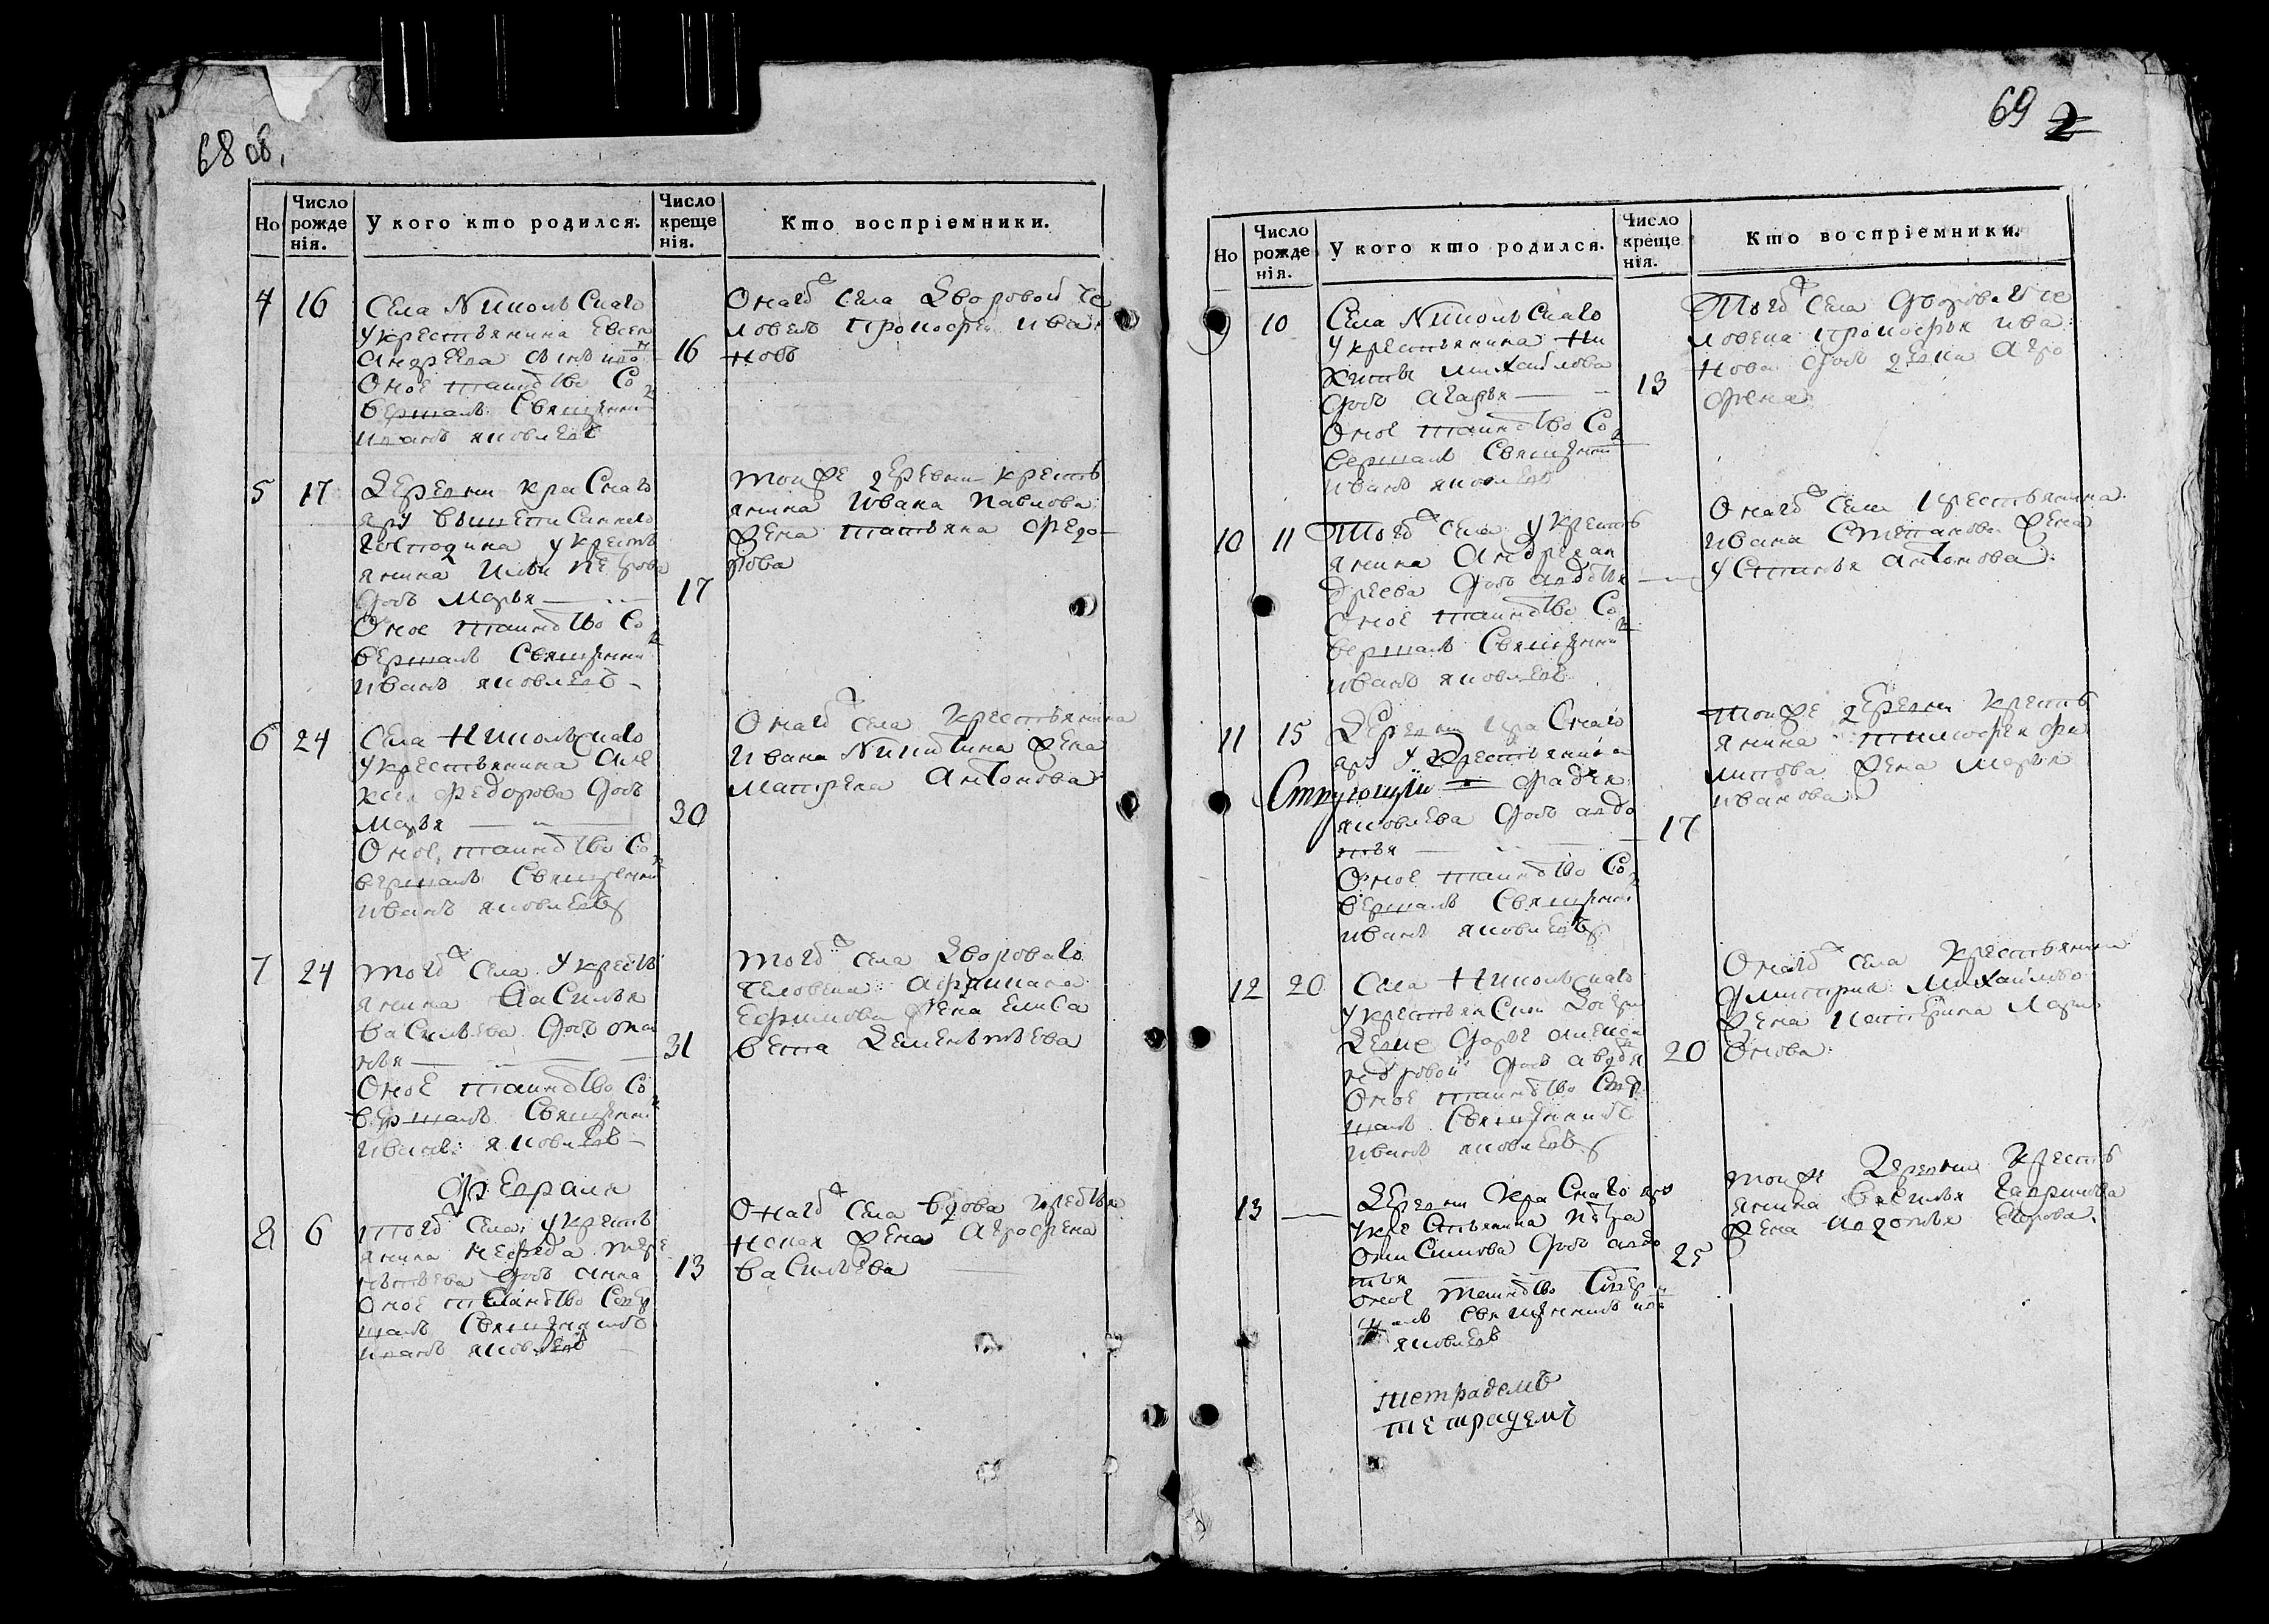 68 об.
Но
Число рожденія.
У кого кто родился.
Число крещенія.
Кто воспріемники.
4
16
Села Никольскаго
у крестьянина Евсея
Андреева сынъ
Оное таинство Со
вершалъ Священник
иванъ яковлевъ
16
Онагож села Дворовой че
ловекъ Прокофей ива
новъ
5
17
Деревни краснаго
яру
господина у кресть
янина Ильи петрова
дочь Марья
Оное таинство Со
вершалъ Священник
иванъ яковлевъ
17
тойже деревни кресть
янина Ивана Павлова
жена татьяна федо
рова
6
24
Села Никольскаго
у крестьянина Але
ксея федорова дочь
Марья
Оное таинство Со
вершалъ Священник
иванъ яковлевъ
30
Онагож села крестьянина
Ивана Никитина жена
Матрена Антонова
7
24
тогож села у кресть
янина Василья
васильева дочь
Оное таинство Со
вершалъ Священник
иванъ яковлевъ
31
тогож села Двороваго
человека
Ефимова жена Елиса
вета Дементьева
февраля
8
6
тогож села у кресть
янина
дочь анна
Оное таинство Совер
шалъ Священникъ
иванъ яковлевъ
13
Онагож села вдова
жена Агрофена
васильева
69 2
Но
Число рожденія.
У кого кто родился.
Число крещенія.
Кто воспріемники.
9
10
Села Никольскаго
у крестьянина Ни
киты михайлова
дочь агафья
Оное таинство Со
вершалъ Священник
иванъ яковлевъ
13
Тогож села дворов че
ловека прокофья ива
нова дочь девка агро
фена
10
11
Тогож села у кресть
янина Андрея ан
дреева дочь авдотья
Оное таинство Со
вершалъ Священник
иванъ яковлевъ
Онагож села крестьянина
ивана Степанова жена
устинья антонова
11
15
Деревни краснаго
яру у крестьянина
фадея
яковлева дочь авдо
тья
Оное таинство Со
вершалъ Священник
иванъ яковлевъ
17
тойже деревни кресть
янина тимофея фи
липова жена Марья
иванова
12
20
Села Никольскаго
у крестьянской
девке дарье
дочь авдотья
Оное таинство Совер
шалъ Священникъ
иванъ яковлевъ
20
Онагож села крестьянина
дмитрия Михайлова
жена катерина Лари
онова
13
Деревни краснаго яру
у крестьянина петра
дочь авдо
тья
оное таинство Совер
шалъ священникъ ива
яковлевъ
25
тойже деревни кресть
янина василья гаврилова
жена авдотья Егорова
тетрадемъ
тетрадемъ